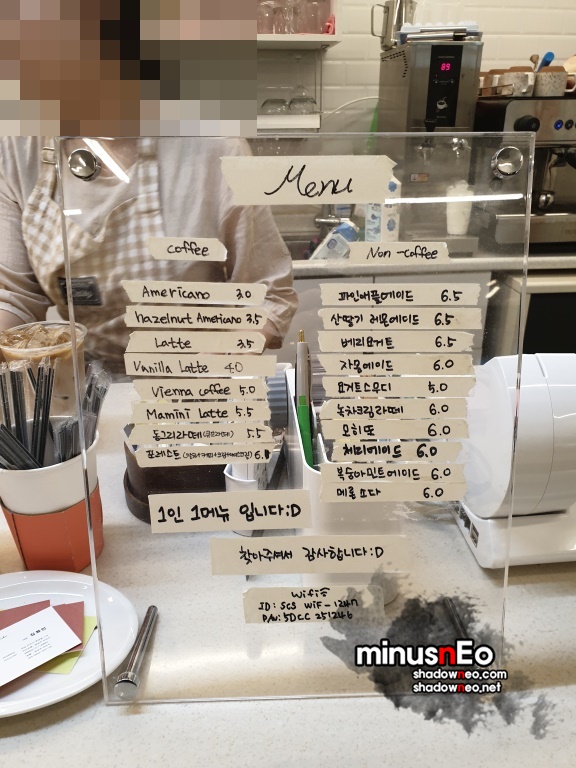 89
Menu
coffee
Americano 3.0
hazelnut Americano 3.5
Latte 3.5
Vanilla Latte 4.0
Vienna coffee 5.0
Mamini Latte 5.5
동그리라떼 5.5
포레스트 6.
Non-coffee
파인애플에이드 6.5
산딸기 레몬에이드 6.5
베리요거트 6.5
자몽에이드 6.0
요거트스무디 5.0
녹차크림라떼 6.0
오히또 6.0
체리에이드 6.0
복숭아민트에이드 6.0
메론소다 6.0
1인 1메뉴 입니다:D
찾아주셔서 감사합니다:D
Wifi
ID: SCS WiF-124n
P/W: 5DCC 251246
minusnEo
shadowneo.com
shadowneo.net